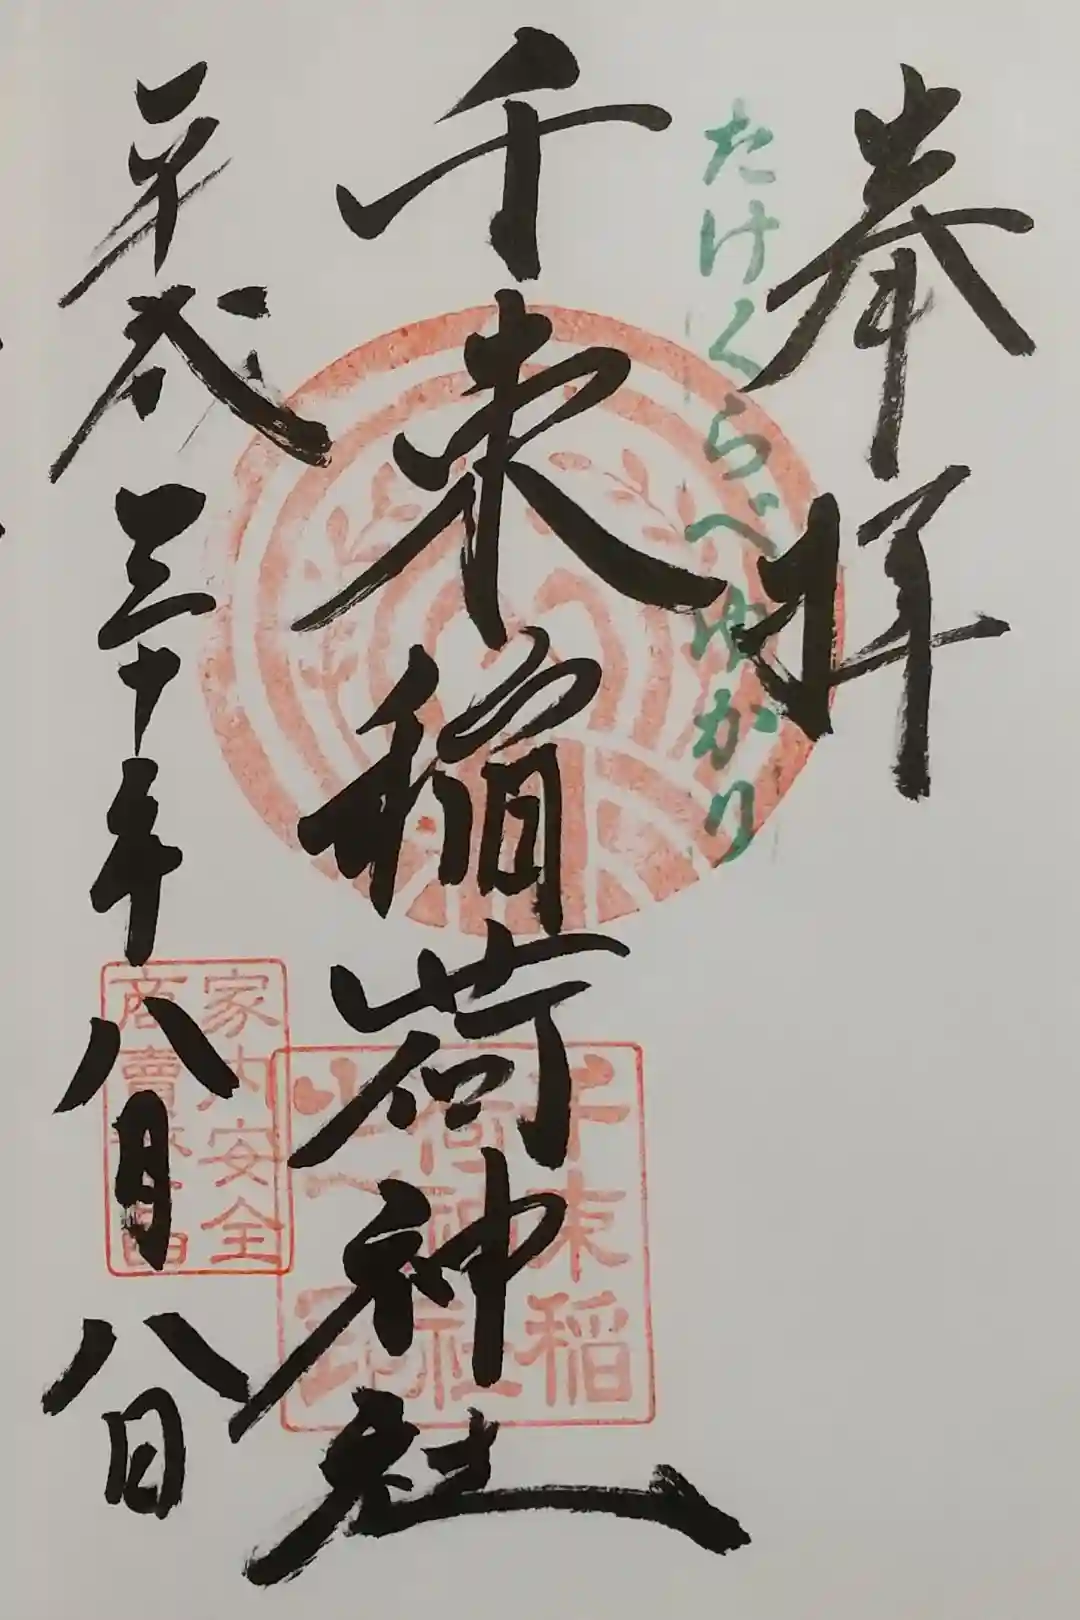 奉拝
たけくらべゆかり
千束稲荷神社
平成三十年八月八日
千束稲
荷神社
之印
家内安全
商賣繁昌